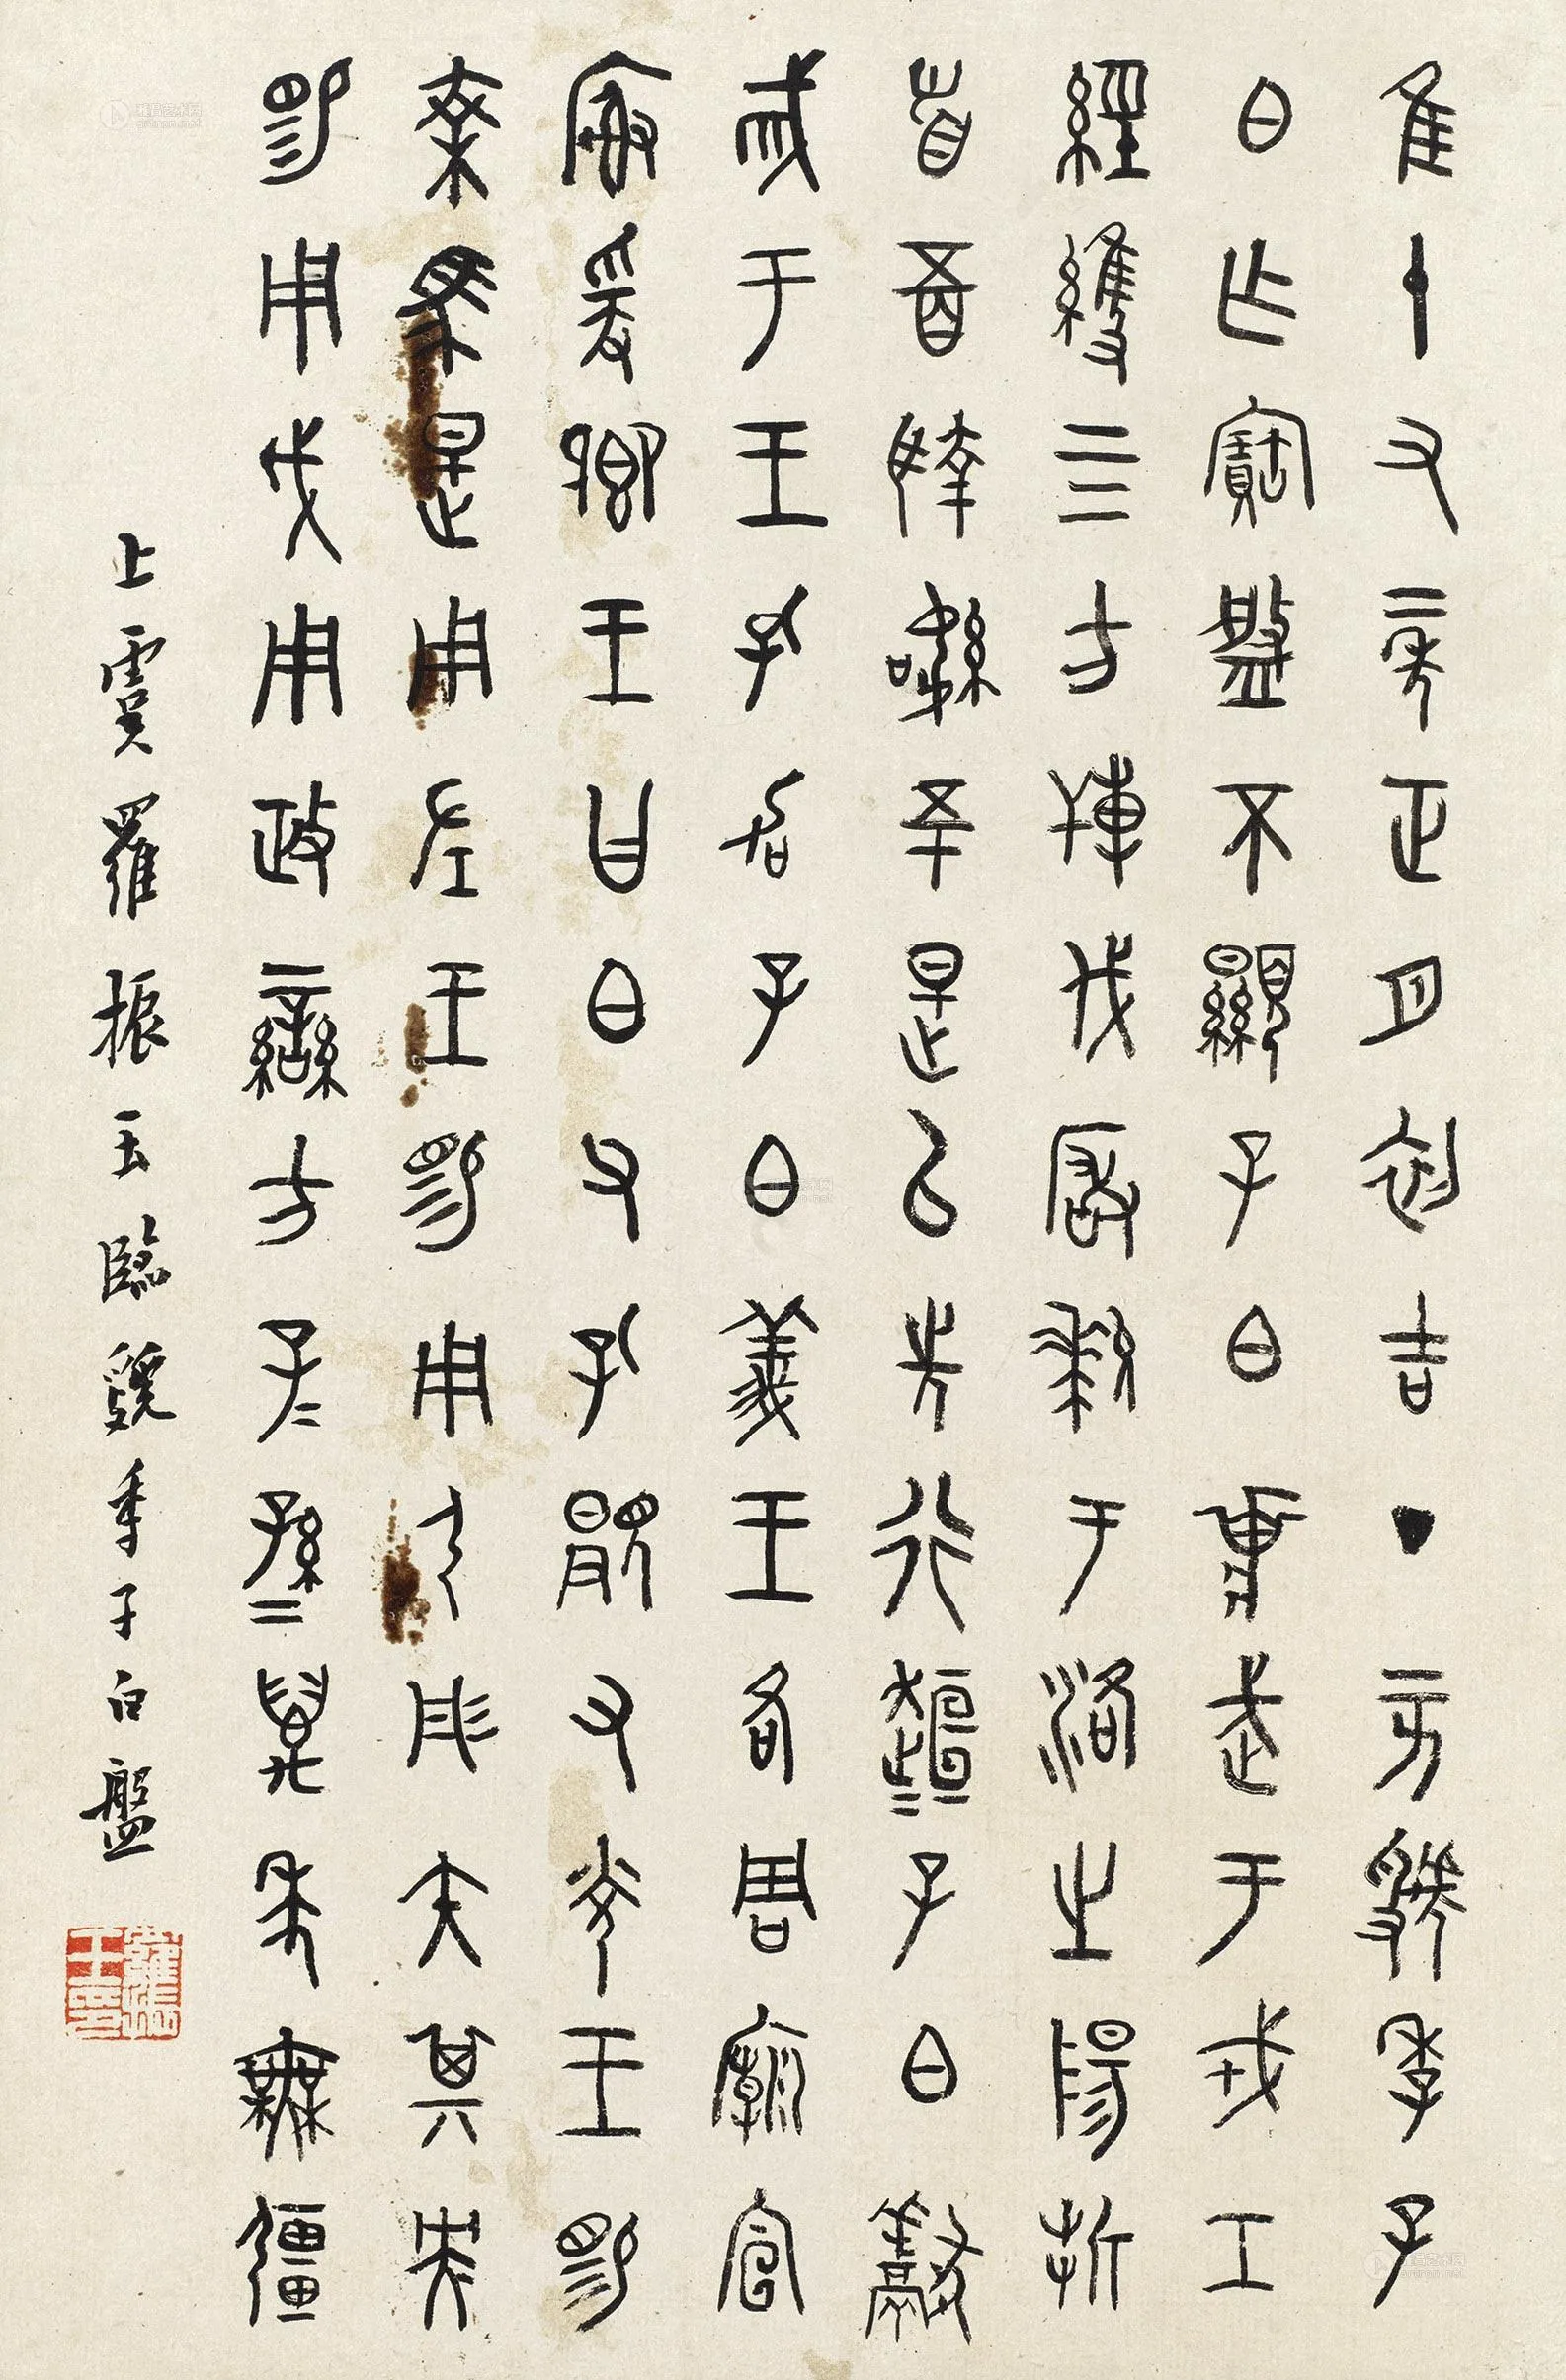 隹十又二年正月初吉丁亥虢季子
白乍寶盤不顯子白𤕌武于戎工
經維四方搏伐玁狁于洛之陽折
首五百執訊五十是以先行桓=子白獻
馘于王孔加子白義王各周廟宣
榭爰鄉王曰白父孔顯又光王睗
乘馬是用左王睗用弓彤矢其央
睗用戉用政蠻方子=孫=萬年無疆
上虞羅振玉臨虢季子白盤
羅振玉印